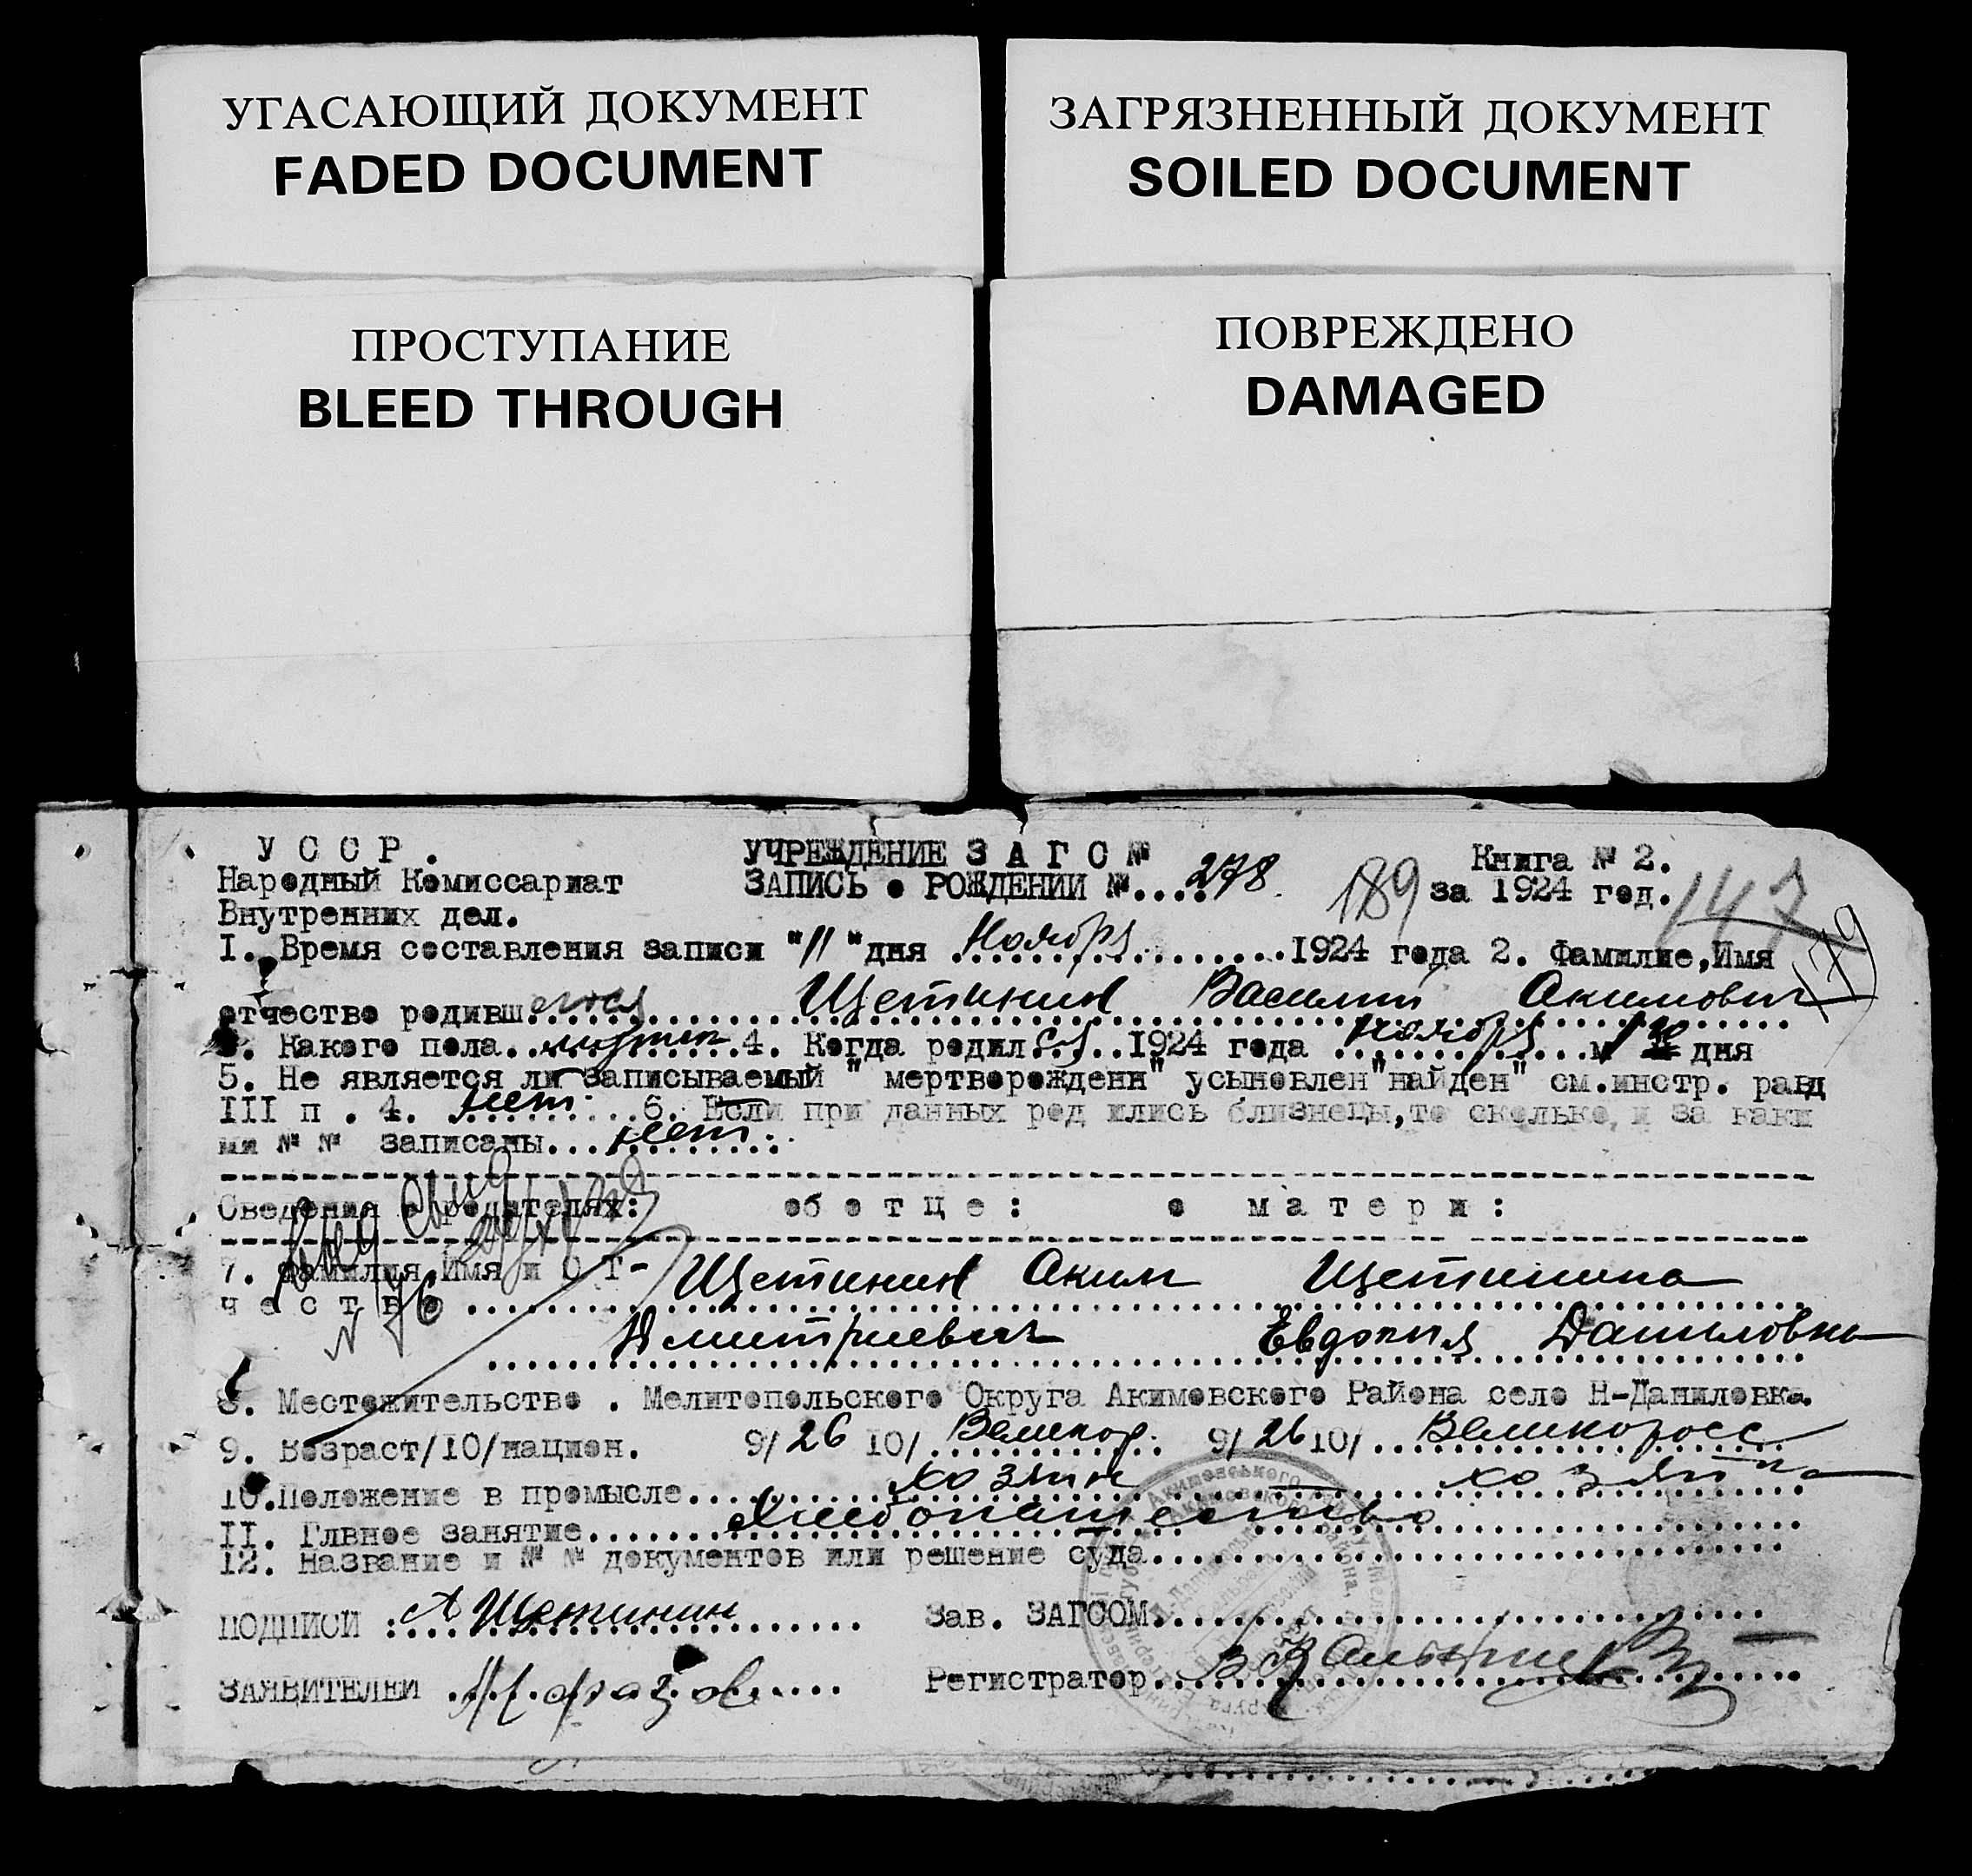 УГАСАЮЩИЙ ДОКУМЕНТ
FADED DOCUMENT
ЗАГРЯЗНЕННЫЙ ДОКУМЕНТ
SOILED DOCUMENT
ПРОСТУПАНИЕ
BLEED THROUGH
ПОВРЕЖДЕНО
DAMAGED
У С С Р .
УЧРЕЖДЕНИЕ З А Г С №
Книга № 2.
Народный Комиссариат
ЗАПИСЬ о РОЖДЕНИИ №....278.
189
за 1924 год.
147
Внутренних дел.
179
I. Время составления записи "11"дня Ноября 1924 года 2. Фамилие,Имя
отчество родивш егося Щетинин Василий Акимович
3. Какого пола 4. Когда родил ся 1924 года ноября м дня
5. Не является ли записываемый " мертворожденн" усыновлен"найден" см.инстр. разд
III п . 4. нет 6. Если при данных род ились близнецы,то сколько и за каки
ми № № записаны... нет
Сведения о родителях: об о т ц е : о м а т е р и :
7. Фамилия Имя и О Т-
ч е с т в о
Щетинин Аким Щетинина
№ 76
Дмитриевич Евдокия Даниловна
8. Местожительство . Мелитопольского Округа Акимовского Района село Н-Даниловка.
9. Возраст/10/национ. 9/ 26 10/ Великор. 9/ 26 10/ Великоросс
10.Положение в промысле хозяин хозяйка
II. Глвное занятие Хлебопашество
12. Название и № № документов или решение суда
ПОДПИСИ : А Щетинин Зав. ЗАГСОМ
ЗАЯВИТЕЛЕЙ Регистратор